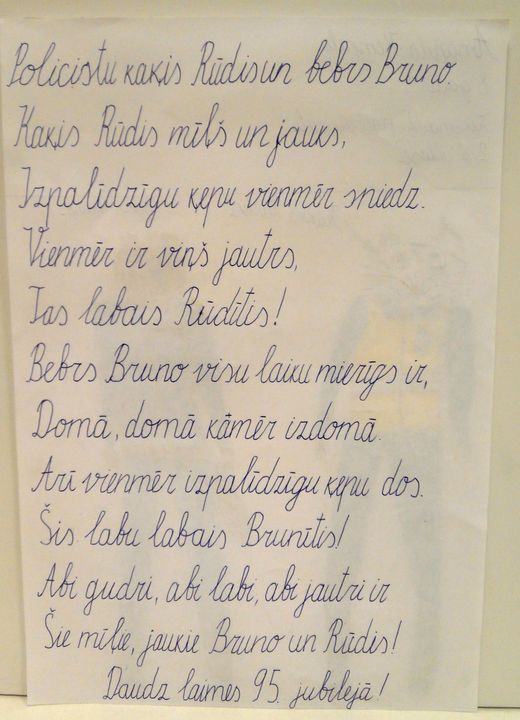 Policistu kaķis Rūdis un bebrs Bruno.
Kaķis Rūdis mīļš un jauks,
Izpalīdzīgu ķepu vienmēr sniedz.
Vienmēr ir viņš jautrs,
Tas labais Rūdītis!
Bebrs Bruno visu laiku mierīgs ir,
Domā, domā kāmēr izdomā.
Arī vienmēr izpalīdzīgu ķepu dos.
Šis labu labais Brunītis!
Abi gudri, abi labi, abi jautri ir
Šie mīļie, jaukie Bruno un Rūdis!
Daudz laimes 95. jubilejā!